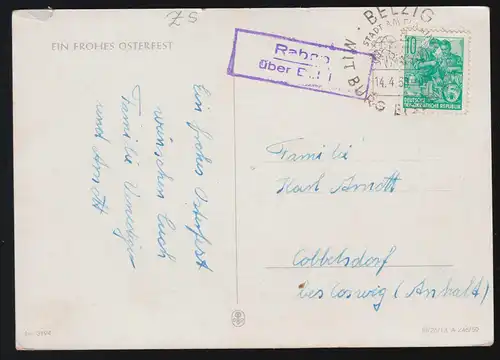 57
EIN FROHES OSTERFEST
Raben
über Belzig
BELZIG
MIT BURG
STADT
14.4.5
10
DEUTSCHE DEMOKRATISCHE REPUBLIK
Ein frohes Osterfest
wünschen Euch
Familie Venediger
und Arnott
Familie
Karl Arnott
Cobbelsdorf
bes Coswig (Anhalt)